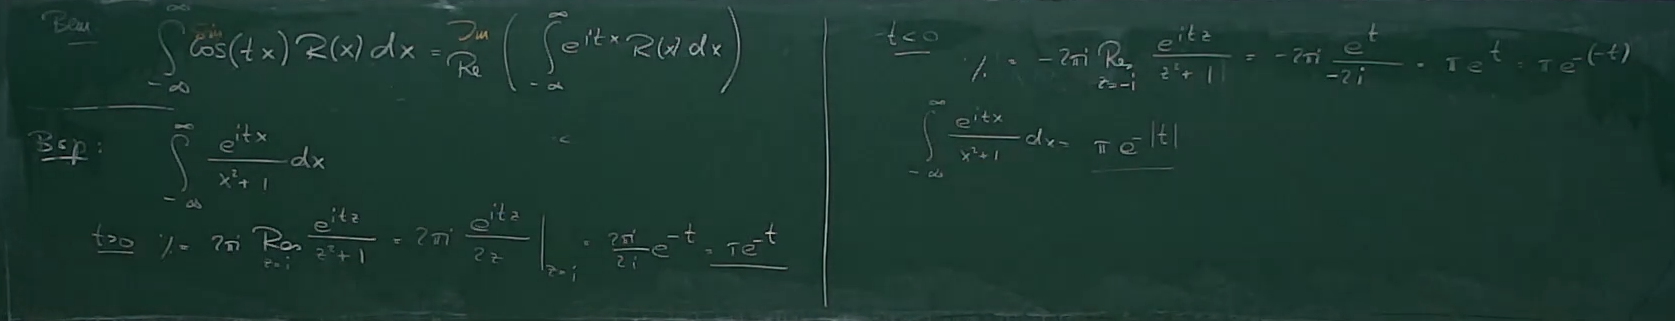 Bem ∫_{-∞}^{∞} cos(tx) R(x) dx = Re ( ∫_{-∞}^{∞} e^{itx} R(x) dx )
sin Im
Bsp: ∫_{-∞}^{∞} e^{itx}/(x²+1) dx
t>0 ·/. = 2πi Res_{z=i} e^{itz}/(z²+1) = 2πi e^{itz}/(2z) |_{z=i} = 2πi/(2i) e^{-t} = πe^{-t}
t<0 ·/. = -2πi Res_{z=-i} e^{itz}/(z²+1) = -2πi e^{t}/(-2i) = πe^{t} = πe^{-(-t)}
∫_{-∞}^{∞} e^{itx}/(x²+1) dx = πe^{-|t|}